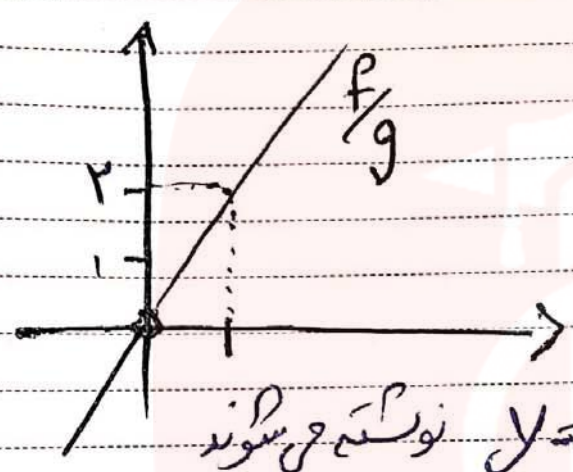 f/g
۲
۱
y= نوشته می‌شوند